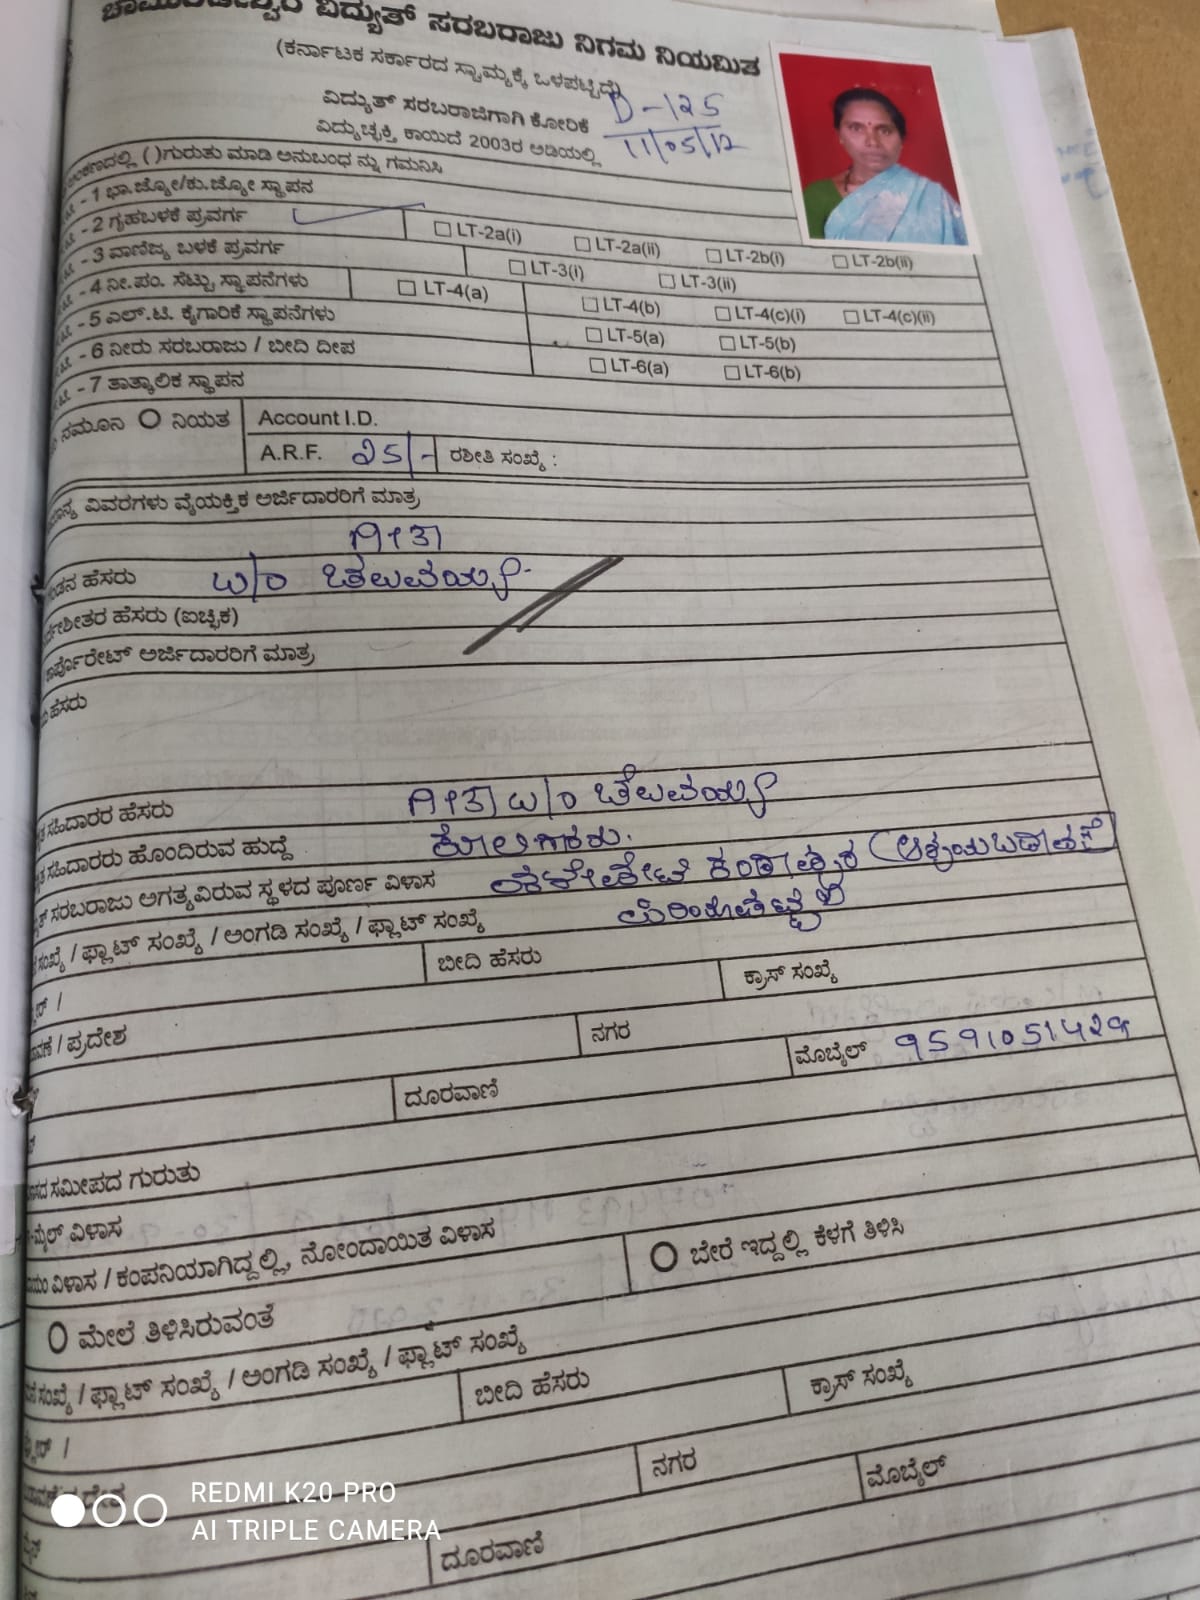 ವಿದ್ಯುತ್ ಸರಬರಾಜು ನಿಗಮ ನಿಯಮಿತ
(ಕರ್ನಾಟಕ ಸರ್ಕಾರದ ಸ್ವಾಮ್ಯಕ್ಕೆ ಒಳಪಟ್ಟಿದೆ)
D-125
ವಿದ್ಯುತ್ ಸರಬರಾಜಿಗಾಗಿ ಕೋರಿಕೆ
11/05/12
ವಿದ್ಯುಚ್ಛಕ್ತಿ ಕಾಯಿದೆ 2003ರ ಅಡಿಯಲ್ಲಿ
( )ಗುರುತು ಮಾಡಿ ಅನುಬಂಧ ನ್ನು ಗಮನಿಸಿ
- 1 ಭಾ.ಜ್ಯೋ/ಕು.ಜ್ಯೋ ಸ್ಥಾಪನ
- 2 ಗೃಹಬಳಕೆ ಪ್ರವರ್ಗ LT-2a(i) LT-2a(ii) LT-2b(i) LT-2b(ii)
- 3 ವಾಣಿಜ್ಯ ಬಳಕೆ ಪ್ರವರ್ಗ LT-3(i) LT-3(ii)
- 4 ನೀ.ಪಂ. ಸೆಟ್ಟು ಸ್ಥಾಪನೆಗಳು LT-4(a) LT-4(b) LT-4(c)(i) LT-4(c)(ii)
- 5 ಎಲ್.ಟಿ. ಕೈಗಾರಿಕೆ ಸ್ಥಾಪನೆಗಳು LT-5(a) LT-5(b)
- 6 ನೀರು ಸರಬರಾಜು / ಬೀದಿ ದೀಪ LT-6(a) LT-6(b)
- 7 ತಾತ್ಕಾಲಿಕ ಸ್ಥಾಪನ
ನಮೂನಿ ನಿಯತ Account I.D.
A.R.F. 25/- ರಶೀತಿ ಸಂಖ್ಯೆ :
ವಿವರಗಳು ವೈಯಕ್ತಿಕ ಅರ್ಜಿದಾರರಿಗೆ ಮಾತ್ರ
ಹೆಸರು w/o ಚೆಲುವಯ್ಯ
ಹೆಸರು (ಐಚ್ಛಿಕ)
ಅರ್ಜಿದಾರರಿಗೆ ಮಾತ್ರ
ಹೆಸರು
ಸಹಿದಾರರ ಹೆಸರು w/o ಚೆಲುವಯ್ಯ
ಸಹಿದಾರರು ಹೊಂದಿರುವ ಹುದ್ದೆ ಕೂಲಿಗಾರರು.
ಸರಬರಾಜು ಅಗತ್ಯವಿರುವ ಸ್ಥಳದ ಪೂರ್ಣ ವಿಳಾಸ
ಸಂಖ್ಯೆ / ಫ್ಲಾಟ್ ಸಂಖ್ಯೆ / ಅಂಗಡಿ ಸಂಖ್ಯೆ / ಫ್ಲಾಟ್ ಸಂಖ್ಯೆ
ಬೀದಿ ಹೆಸರು ಕ್ರಾಸ್ ಸಂಖ್ಯೆ
/ ಪ್ರದೇಶ ನಗರ
ದೂರವಾಣಿ ಮೊಬೈಲ್ 9591051429
ಸಮೀಪದ ಗುರುತು
ವಿಳಾಸ
ವಿಳಾಸ / ಕಂಪನಿಯಾಗಿದ್ದಲ್ಲಿ, ನೋಂದಾಯಿತ ವಿಳಾಸ
ಮೇಲೆ ತಿಳಿಸಿರುವಂತೆ ಬೇರೆ ಇದ್ದಲ್ಲಿ ಕೆಳಗೆ ತಿಳಿಸಿ
ಸಂಖ್ಯೆ / ಫ್ಲಾಟ್ ಸಂಖ್ಯೆ / ಅಂಗಡಿ ಸಂಖ್ಯೆ / ಫ್ಲಾಟ್ ಸಂಖ್ಯೆ
ಬೀದಿ ಹೆಸರು ಕ್ರಾಸ್ ಸಂಖ್ಯೆ
ನಗರ
ದೂರವಾಣಿ ಮೊಬೈಲ್
REDMI K20 PRO
AI TRIPLE CAMERA